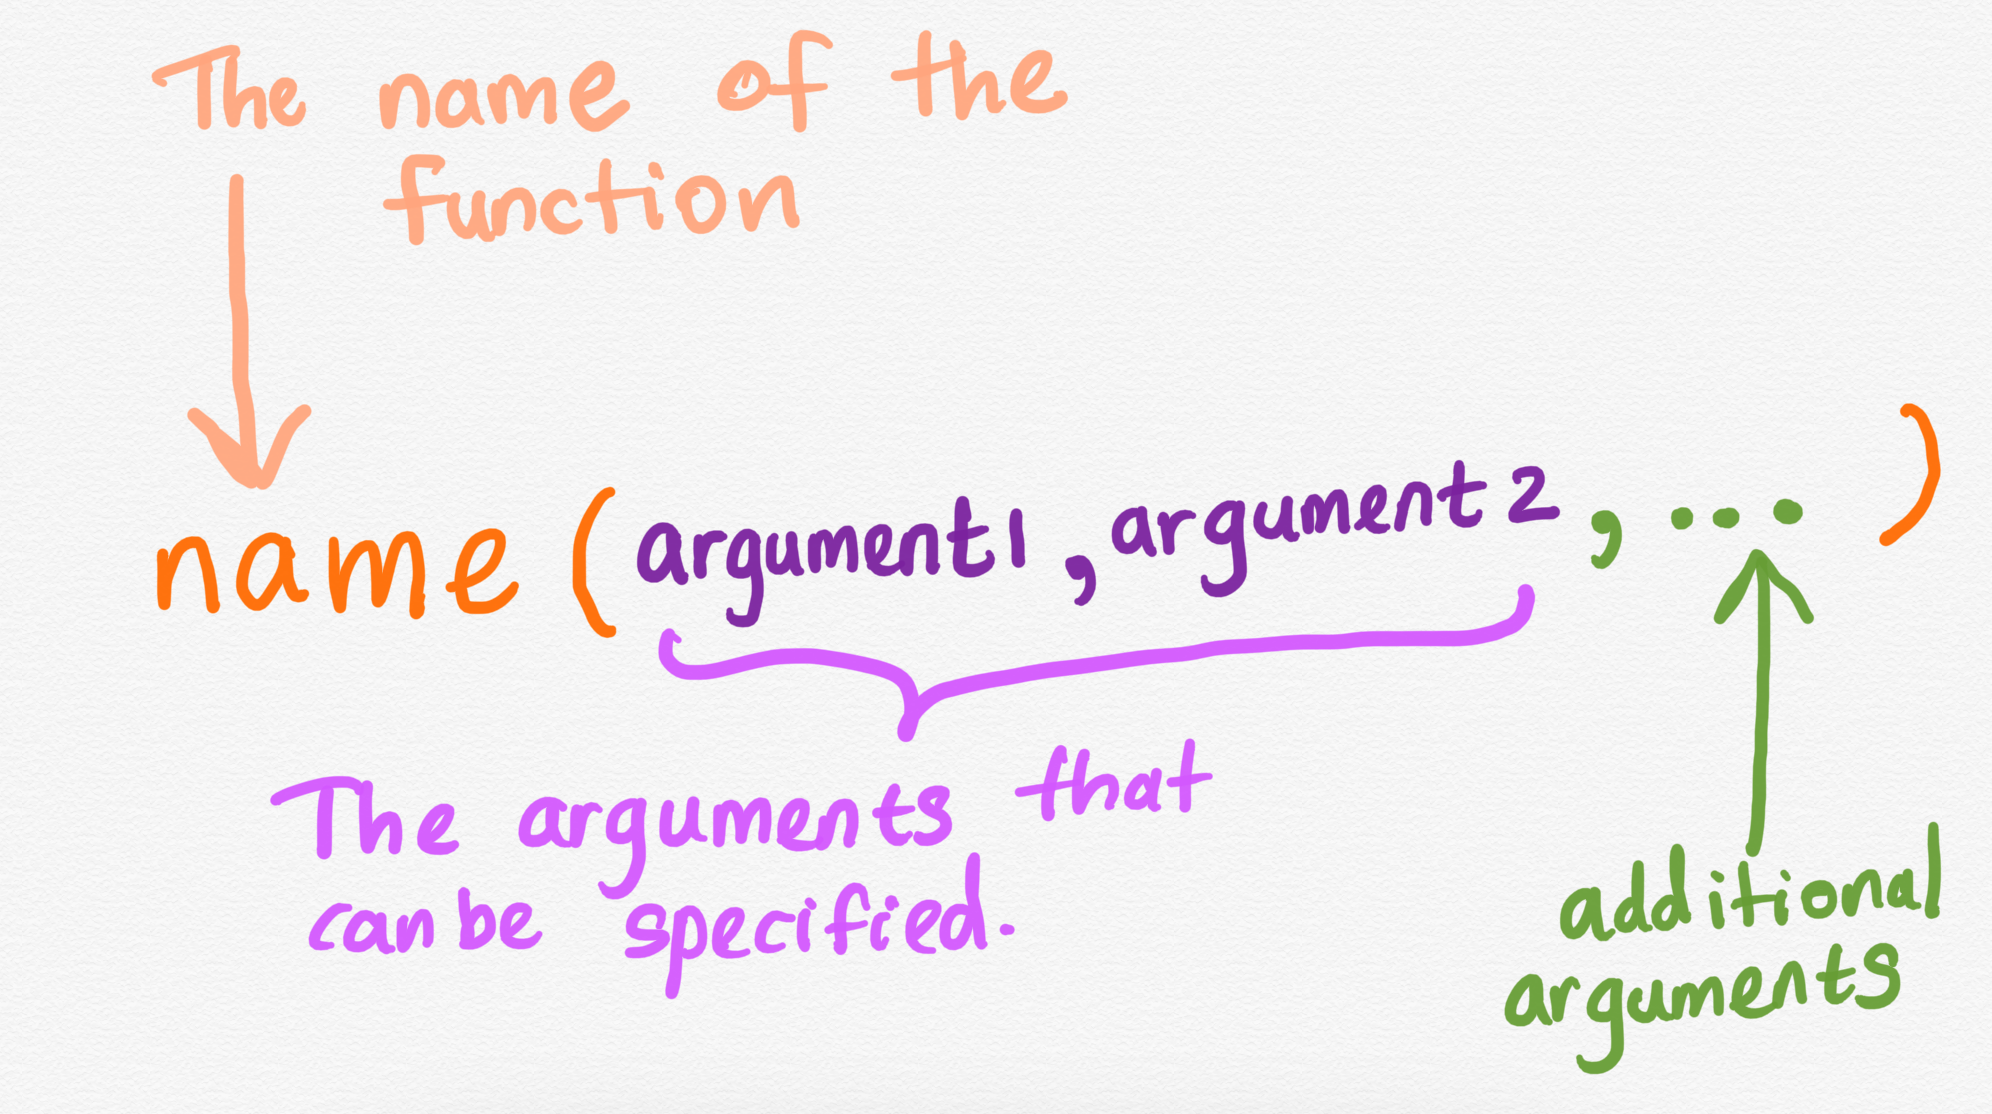 The name of the
function
name (argument1, argument2, ... )
The arguments that
can be specified.
additional
arguments